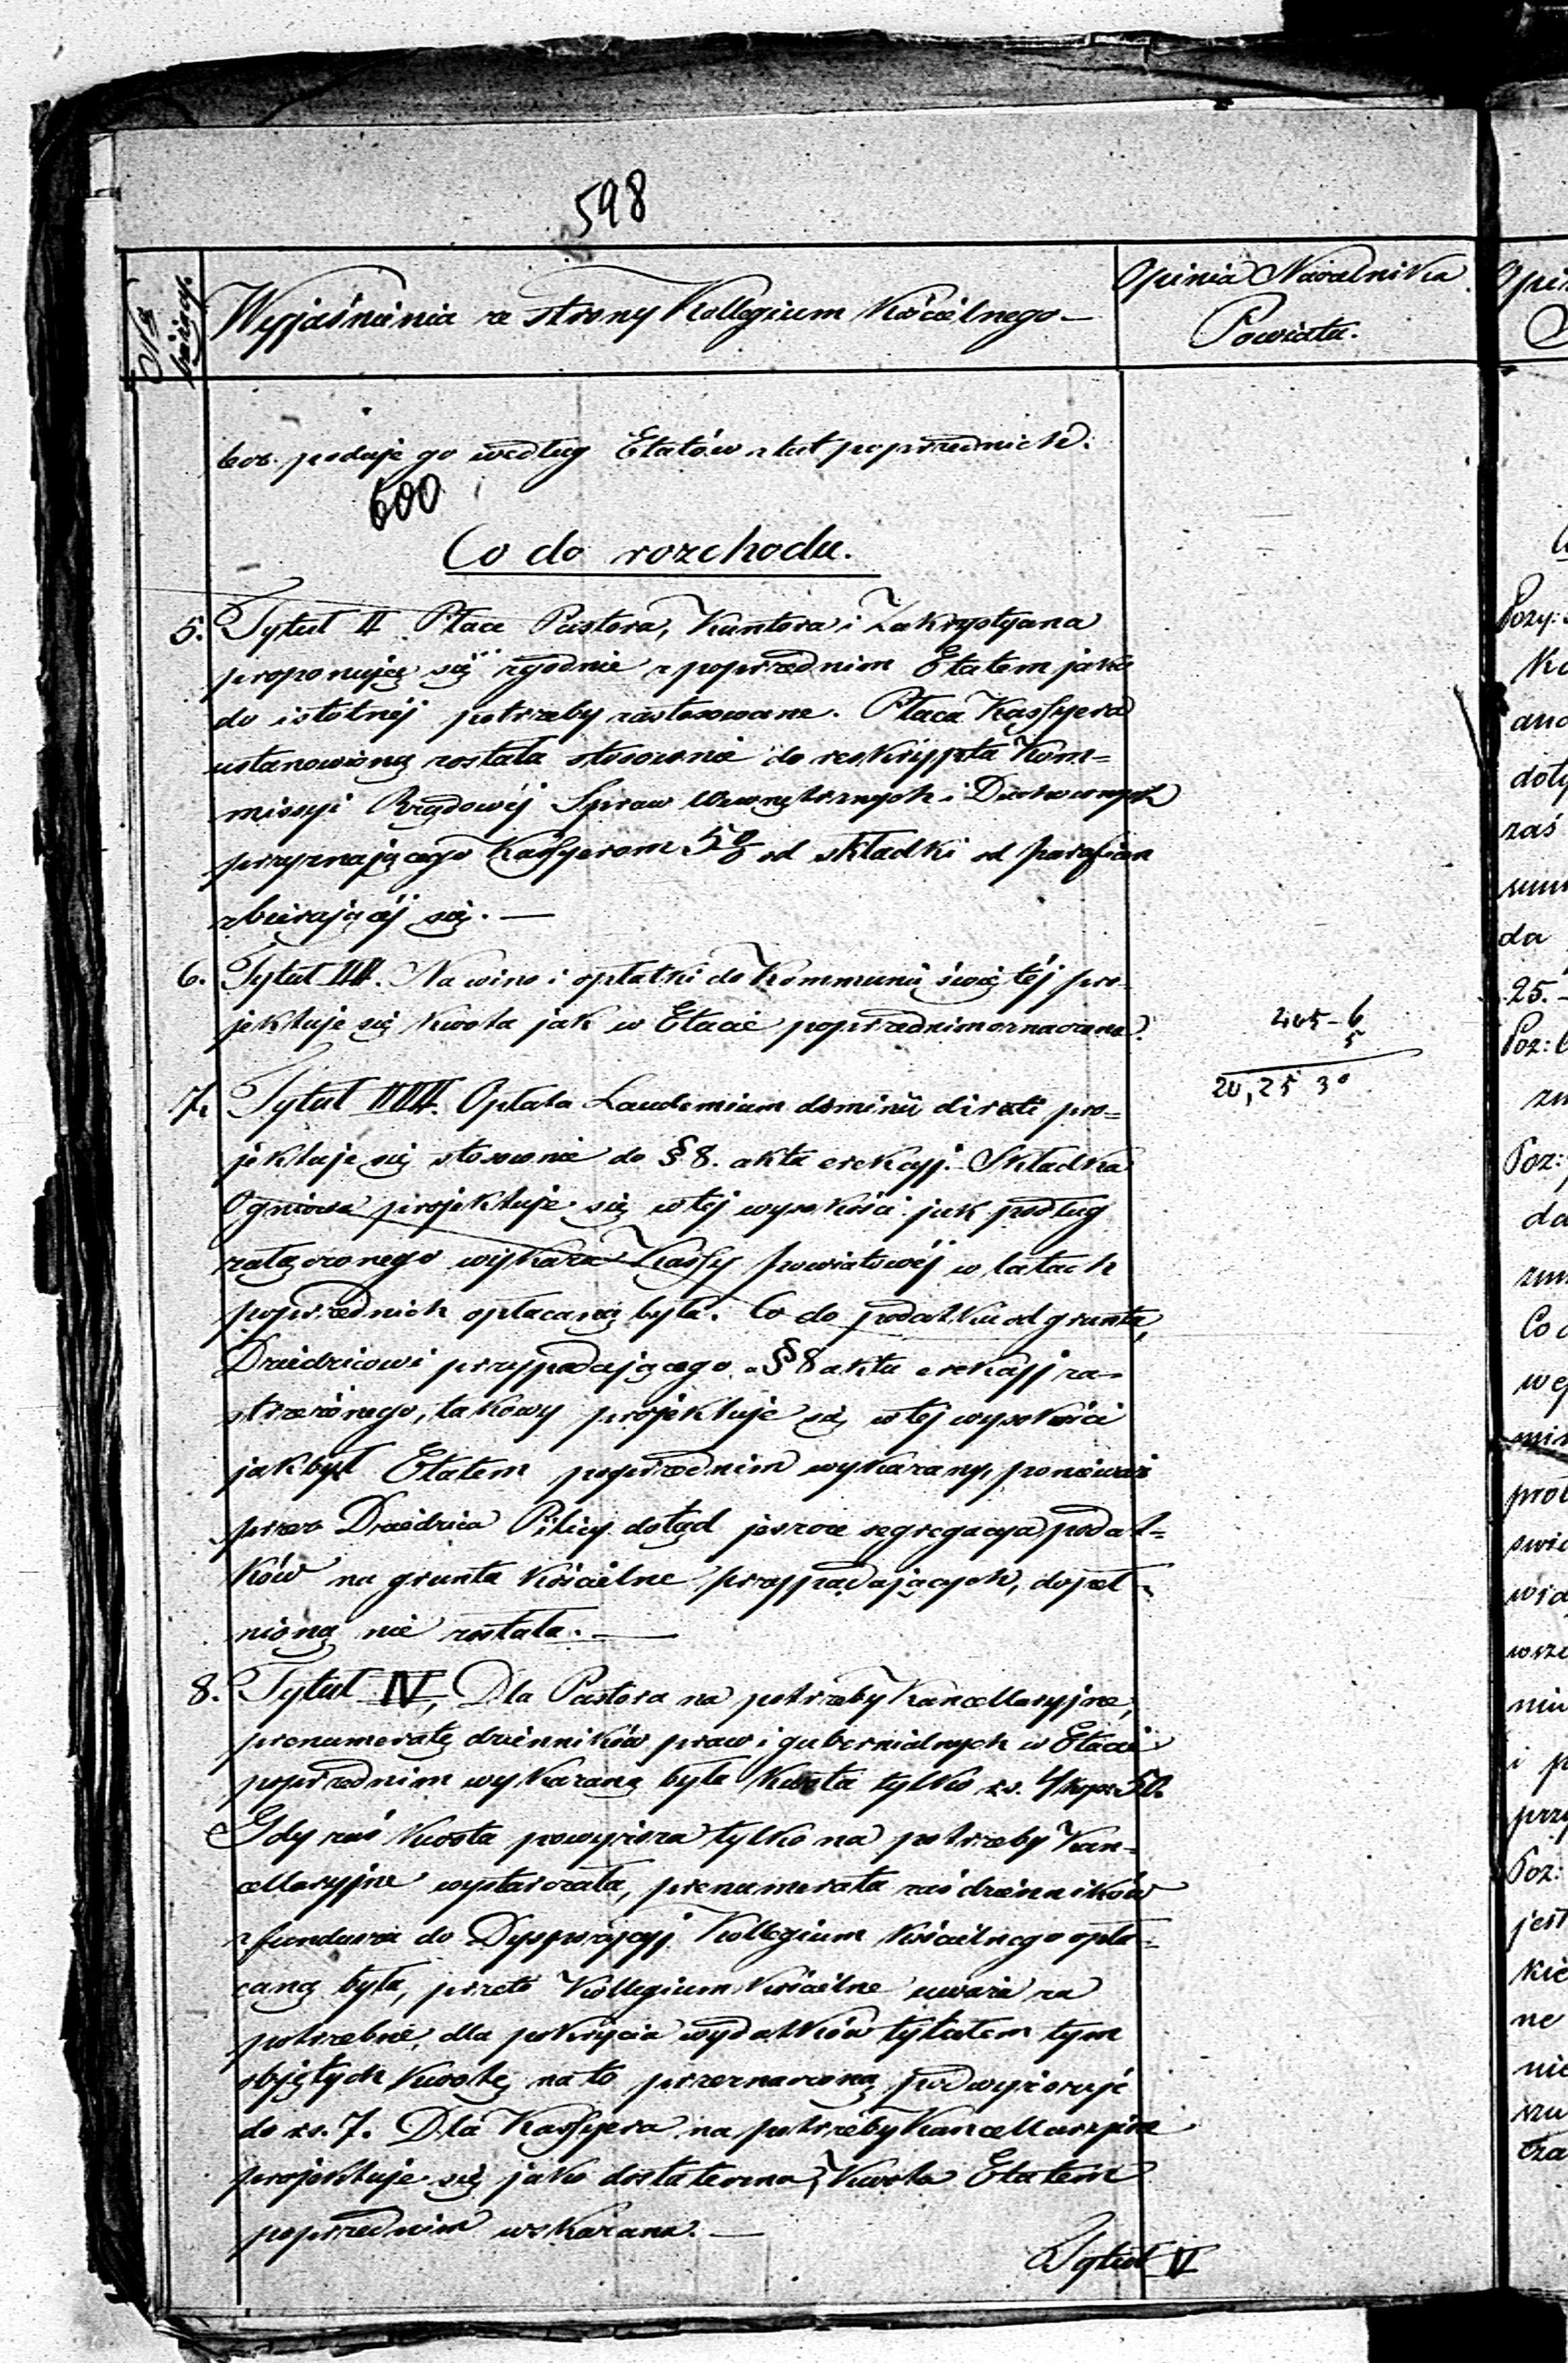 598
Nr bieżący.
Wyjaśnienia ze strony Kollegium Kościelnego —
Opinia Naczelnika
Powiatu.
bos. podaje go według Etatów z lat poprzednich.
600
Co do rozchodu.
5. Tytuł II Płace Pastora, Kantora i Zakrystyana
proponują się zgodnie z poprzednim Etatem jako
do istotnéj potrzeby zastosowane. Płaca Kassyera
ustanowioną została stosownie do reskryptu Kom=
missyi Rządowéj Spraw Wewnętrznych i Duchownych
przyznającego Kassyerom 5% od składki od parafian
zbierającéj się. —
6. Tytuł III. Na wino i opłatki do Kommunii świętéj pro-
jektuje się kwota jak w Etacie poprzednim oznaczona.
405 - 6
5
20,25 30
7. Tytuł IIII. Opłata Laudemium dominii directi pro=
jektuje się stosownie do § 8. aktu erekcyj. Składka
Ogniowa projektuje się w téj wysokości jak podług
załączonego wykazu Kassy powiatowéj w latach
poprzednich opłacaną była. Co do podatku od gruntu,
Dziedzicowi przypadającego a § 8 aktu erekcyj za=
strzeżonego, takowy projektuje się w téj wysokości
jak był Etatem poprzednim wykazany, ponieważ
przez Dziedzica Pilicy dotąd jeszcze segregacya podat=
ków na grunta Kościelne przypadających, dopeł-
nioną nie została. —
8. Tytuł IV, Dla Pastora na potrzeby Kancellaryjne,
prenumeratę dzienników praw i gubernialnych w Etacie
poprzednim wykazaną była kwota tylko rs. 4 kop. 50.
Gdy zaś kwota powyższa tylko na potrzeby Kan-
cellaryjne wystarczała, prenumerata zaś dzienników
z funduszu do Dyspozycyj Kollegium Kościelnego opła-
caną była, przeto Kollegium Kościelne uważa za
potrzebne, dla pokrycia wydatków tytułem tym
objętych kwotę na to przeznaczoną podwyższyć
do rs. 7. Dla Kassyera na potrzeby Kancellaryjne
projektuje się jako dostateczna, kwota Etatem
poprzednim wskazana. —
Tytuł V